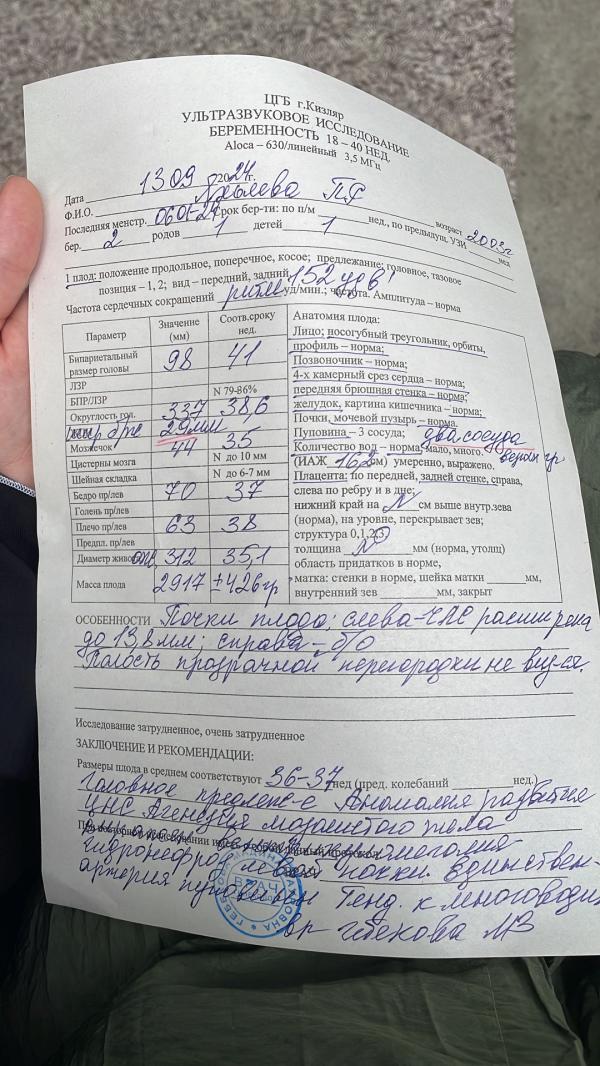 ЦГБ г.Кизляр
УЛЬТРАЗВУКОВОЕ ИССЛЕДОВАНИЕ
БЕРЕМЕННОСТЬ 18 – 40 НЕД.
Aloca – 630/линейный 3,5 МГц
Дата 13 09 2024г.
Ф.И.О. П.С возраст 2003г
Последняя менстр. 0601-24 Срок бер-ти: по п/м нед., по предыдущ. УЗИ нед
бер. 2 родов 1 детей 1
1 плод: положение продольное, поперечное, косое; предлежание: головное, тазовое
позиция – 1, 2; вид – передний, задний
Частота сердечных сокращений ритм 152 уд/мин.; частота. Амплитуда – норма
Параметр Значение (мм) Соотв.сроку нед.
Бипариетальный размер головы 98 41
ЛЗР
БПР/ЛЗР N 79-86%
Округлость гол. 337 38,6
29мм
Мозжечок 44 35
Цистерны мозга N до 10 мм
Шейная складка N до 6-7 мм
Бедро пр/лев 70 37
Голень пр/лев
Плечо пр/лев 63 38
Предпл. пр/лев
Диаметр живо 312 35,1
Масса плода 2917 ± 426гр
Анатомия плода:
Лицо; носогубный треугольник, орбиты,
профиль – норма;
Позвоночник – норма;
4-х камерный срез сердца – норма;
передняя брюшная стенка – норма;
желудок, картина кишечника – норма;
Почки, мочевой пузырь – норма;
Пуповина – 3 сосуда; два сосуда
Количество вод – норма, мало, много.
(ИАЖ 162 см) умеренно, выражено. верхн гр
Плацента: по передней, задней стенке, справа,
слева по ребру и в дне;
нижний край на N см выше внутр.зева
(норма), на уровне, перекрывает зев;
структура 0,1,2,3
толщина N мм (норма, утолщ)
область придатков в норме,
матка: стенки в норме, шейка матки мм,
внутренний зев мм, закрыт
ОСОБЕННОСТИ Почки плода; слева-ЧЛС расширена
до 13,8мм; справа – б/о
Полость прозрачной перегородки не виз-ся.
Исследование затрудненное, очень затрудненное
ЗАКЛЮЧЕНИЕ И РЕКОМЕНДАЦИИ:
Размеры плода в среднем соответствуют 36-37 нед (пред. колебаний нед.)
Головное предлеж-е Аномалия развития
ЦНС Агенезия мозолистого тела
гидронефроз левой почки. Единствен-
артерия пуповины Тенд. к многовод
вр МЗ
ВРАЧ